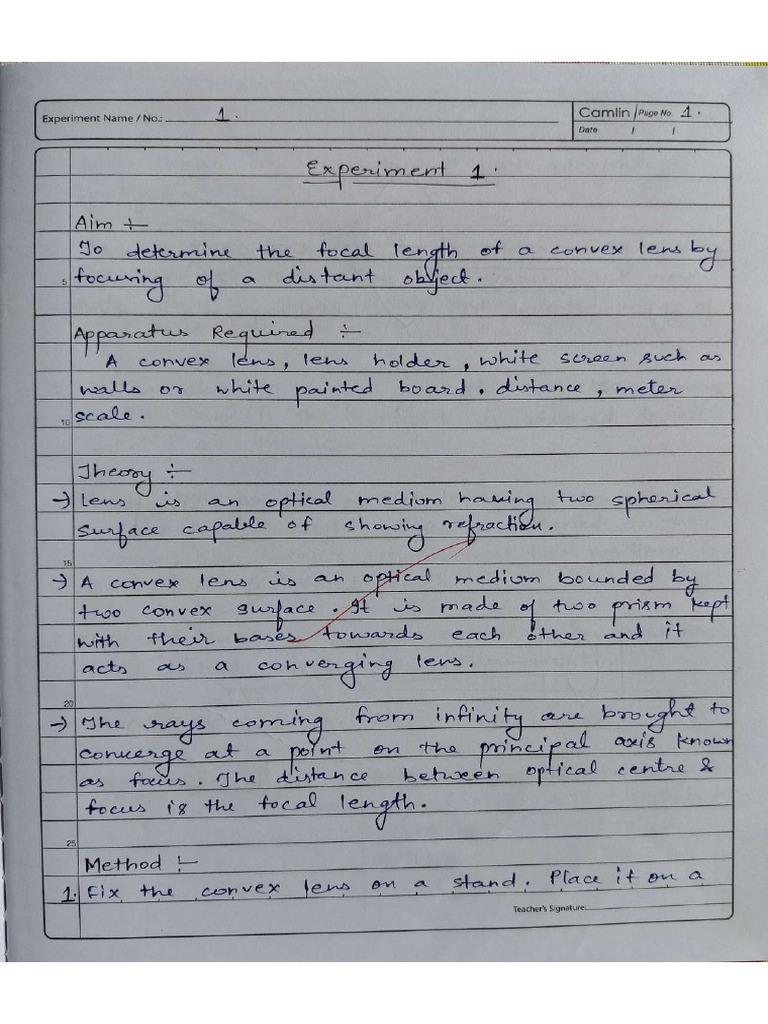 Experiment Name / No.: 1.
Camlin / Page No. 1.
Date / /
Experiment 1.
Aim ÷
To determine the focal length of a convex lens by
5 focusing of a distant object.
Apparatus Required ÷
A convex lens, lens holder, white screen such as
walls or white painted board. distance, meter
10 scale.
Theory ÷
→ Lens is an optical medium having two spherical
surface capable of showing refraction.
15
→ A convex lens is an optical medium bounded by
two convex surface. It is made of two prism kept
with their bases towards each other and it
acts as a converging lens.
20
→ The rays coming from infinity are brought to
converge at a point on the principal axis known
as focus. The distance between optical centre &
focus is the focal length.
25
Method :-
1. Fix the convex lens on a stand. Place it on a
Teacher's Signature: